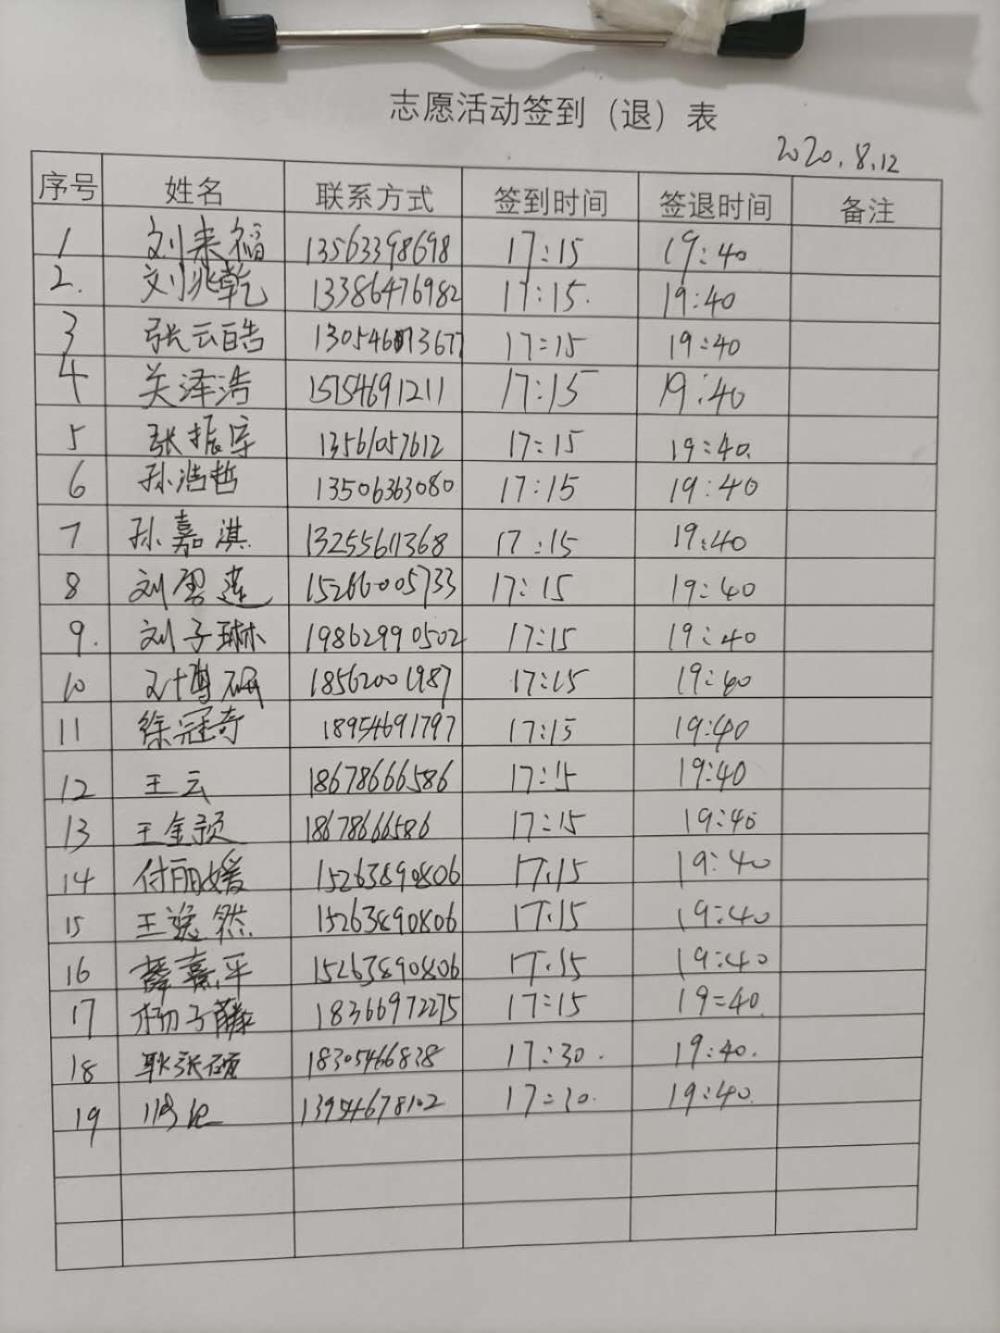 志愿活动签到（退）表
2020.8.12
序号 姓名 联系方式 签到时间 签退时间 备注
1 刘来福 13563398698 17:15 19:40
2. 刘兆乾 13386476982 17:15. 19:40
3 张云皓 17:15 19:40
4 关泽浩 15154691211 17:15 19:40
5 张振宇 13561057612 17:15 19:40.
6 孙浩哲 13506363080 17:15 19:40
7 孙嘉淇 13255611368 17:15 19:40
8 刘 15266005733 17:15 19:40
9. 刘子琳 19862990502 17:15 19:40
10 18562001987 17:15 19:40
11 徐冠奇 18954691797 17:15 19:40
12 王云 18678666586 17:15 19:40
13 王金颖 18678666586 17:15 19:40
14 付丽媛 15263890806 17:15 19:40
15 王逸然 15263890806 17:15 19:40
16 薛熹平 15263890806 17:15 19:40
17 杨子藤 18366972275 17:15 19:40.
18 耿张硕 18305466828 17:30. 19:40.
19 13954678102 17:30. 19:40.